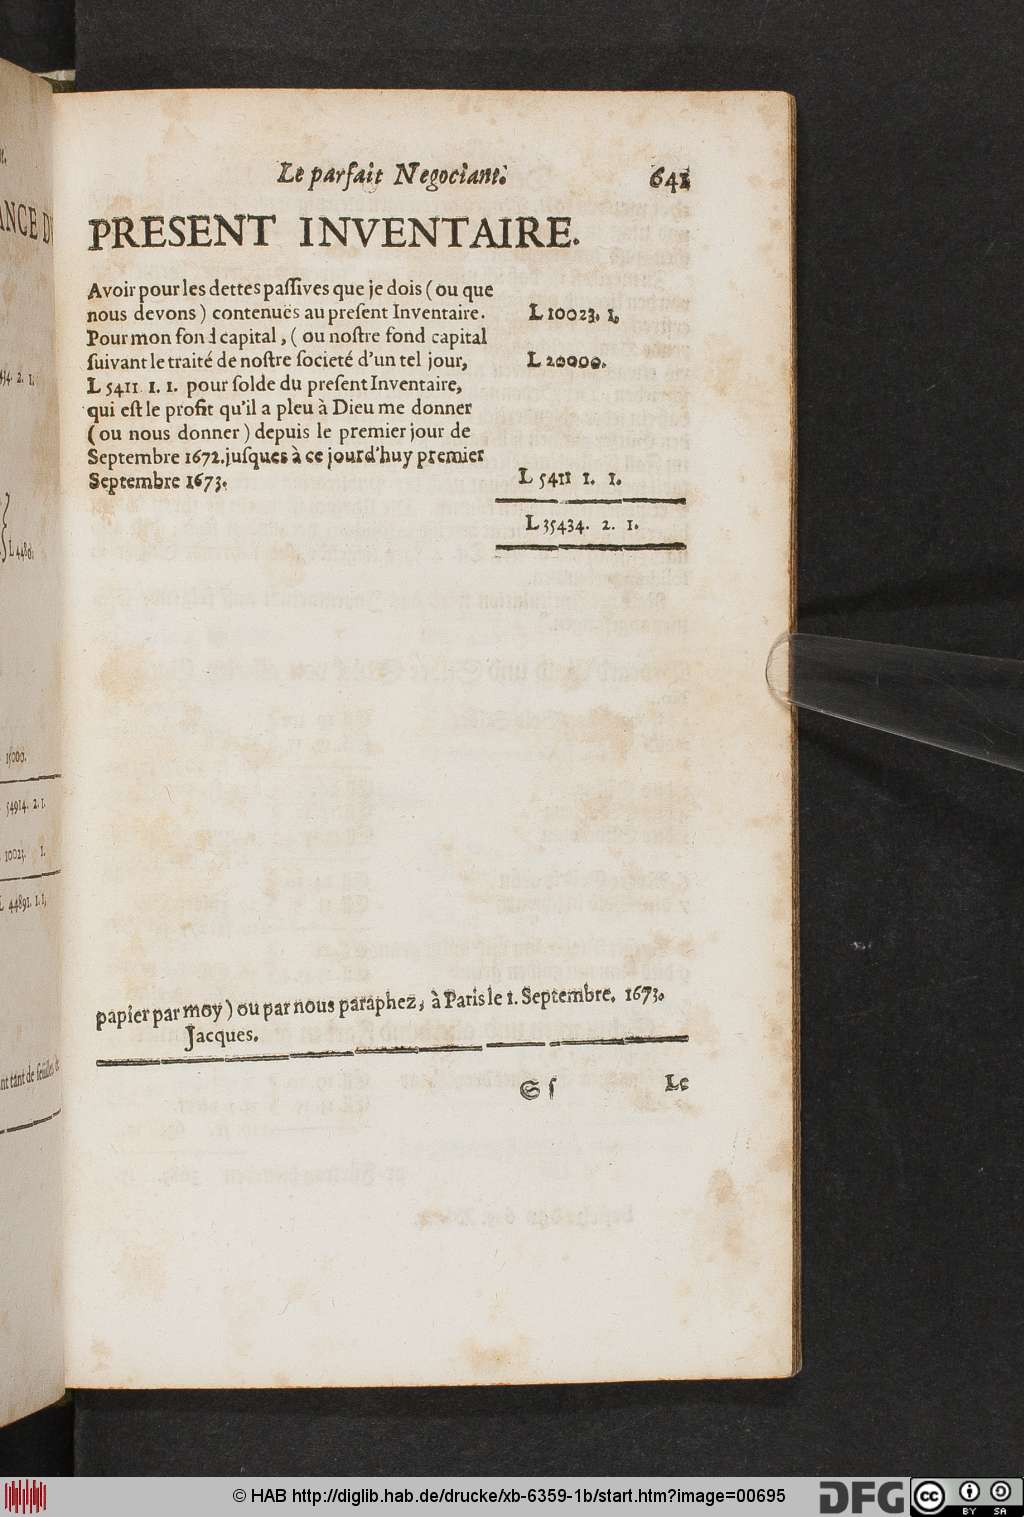 Le parfait Negociant. 641
PRESENT INVENTAIRE.
Avoir pour les dettes paſſives que je dois (ou que
nous devons) contenuës au preſent Inventaire. L 10023. 1.
Pour mon fond capital, (ou noſtre fond capital
ſuivant le traité de noſtre ſocieté d'un tel jour, L 20000.
L 5411 1. 1. pour ſolde du preſent Inventaire,
qui eſt le profit qu'il a pleu à Dieu me donner
(ou nous donner) depuis le premier jour de
Septembre 1672. juſques à ce jourd'huy premier
Septembre 1673. L 5411 1. 1.
L 35434. 2. 1.
papier par moy) ou par nous paraphez, à Paris le 1. Septembre. 1673.
Jacques.
S ſ Le
ANCE D
434. 2. 1.
15000.
54914. 2. 1.
10023. 1.
L 44891. 1. 1,
nt tant de feuilles
© HAB http://diglib.hab.de/drucke/xb-6359-1b/start.htm?image=00695
DFG
cc BY SA